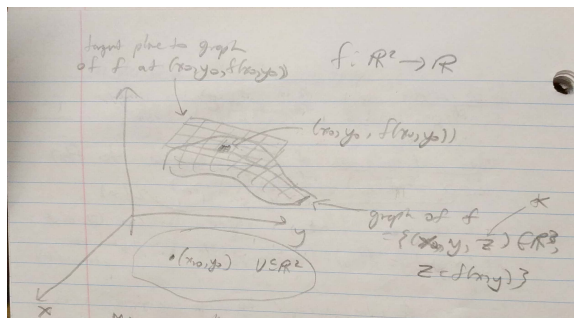 tangent plane to graph
of f at (x₀,y₀,f(x₀,y₀))
f: ℝ² → ℝ
(x₀, y₀, f(x₀,y₀))
graph of f
= {(x, y, z) ∈ ℝ³,
z = f(x,y)}
y
•(x₀,y₀) U⊆ℝ²
x